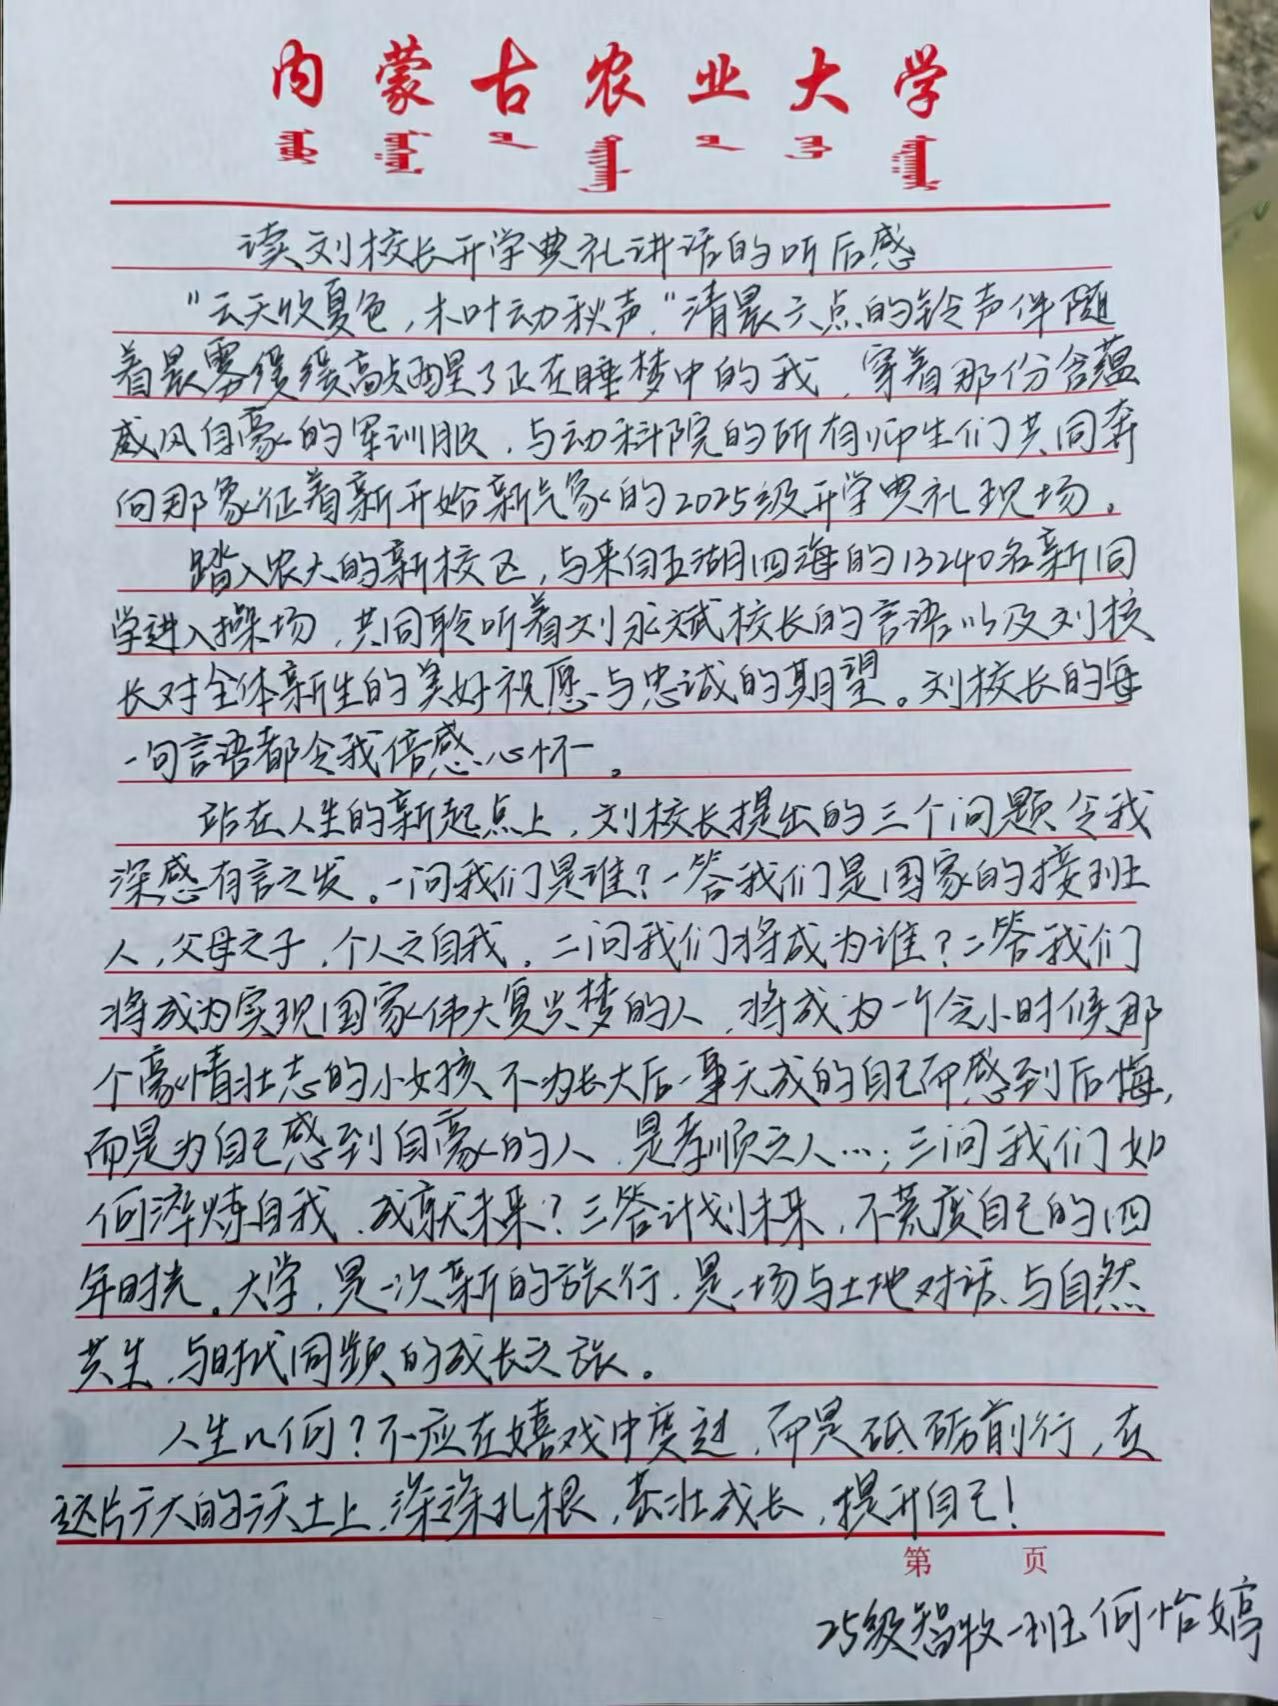 内蒙古农业大学
读刘校长开学典礼讲话的听后感
"云天收夏色，木叶动秋声。"清晨六点的铃声伴随
着晨雾缓缓高点醒了正在睡梦中的我，穿着那份含蕴
威风自豪的军训服，与动科院的所有师生们共同奔
向那象征着新开始新气象的2025级开学典礼现场。
踏入农大的新校区，与来自五湖四海的13240名新同
学进入操场，共同聆听着刘永斌校长的言语以及刘校
长对全体新生的美好祝愿与忠诚的期望。刘校长的每
一句言语都令我倍感心怀。
站在人生的新起点上，刘校长提出的三个问题令我
深感有言之发。一问我们是谁？一答我们是国家的接班
人，父母之子，个人之自我。二问我们将成为谁？二答我们
将成为实现国家伟大复兴梦的人，将成为一个令小时候那
个豪情壮志的小女孩不为长大后一事无成的自己而感到后悔，
而是为自己感到自豪的人，是孝顺之人…；三问我们如
何淬炼自我，成就未来？三答计划未来，不荒度自己的四
年时光。大学，是一次新的旅行，是一场与土地对话、与自然
共生、与时代同频的成长之旅。
人生几何？不应在嬉戏中度过，而是砥砺前行，在
这片广大的沃土上，深深扎根，茁壮成长，提升自己！
第 页
25级智牧一班何怡婷